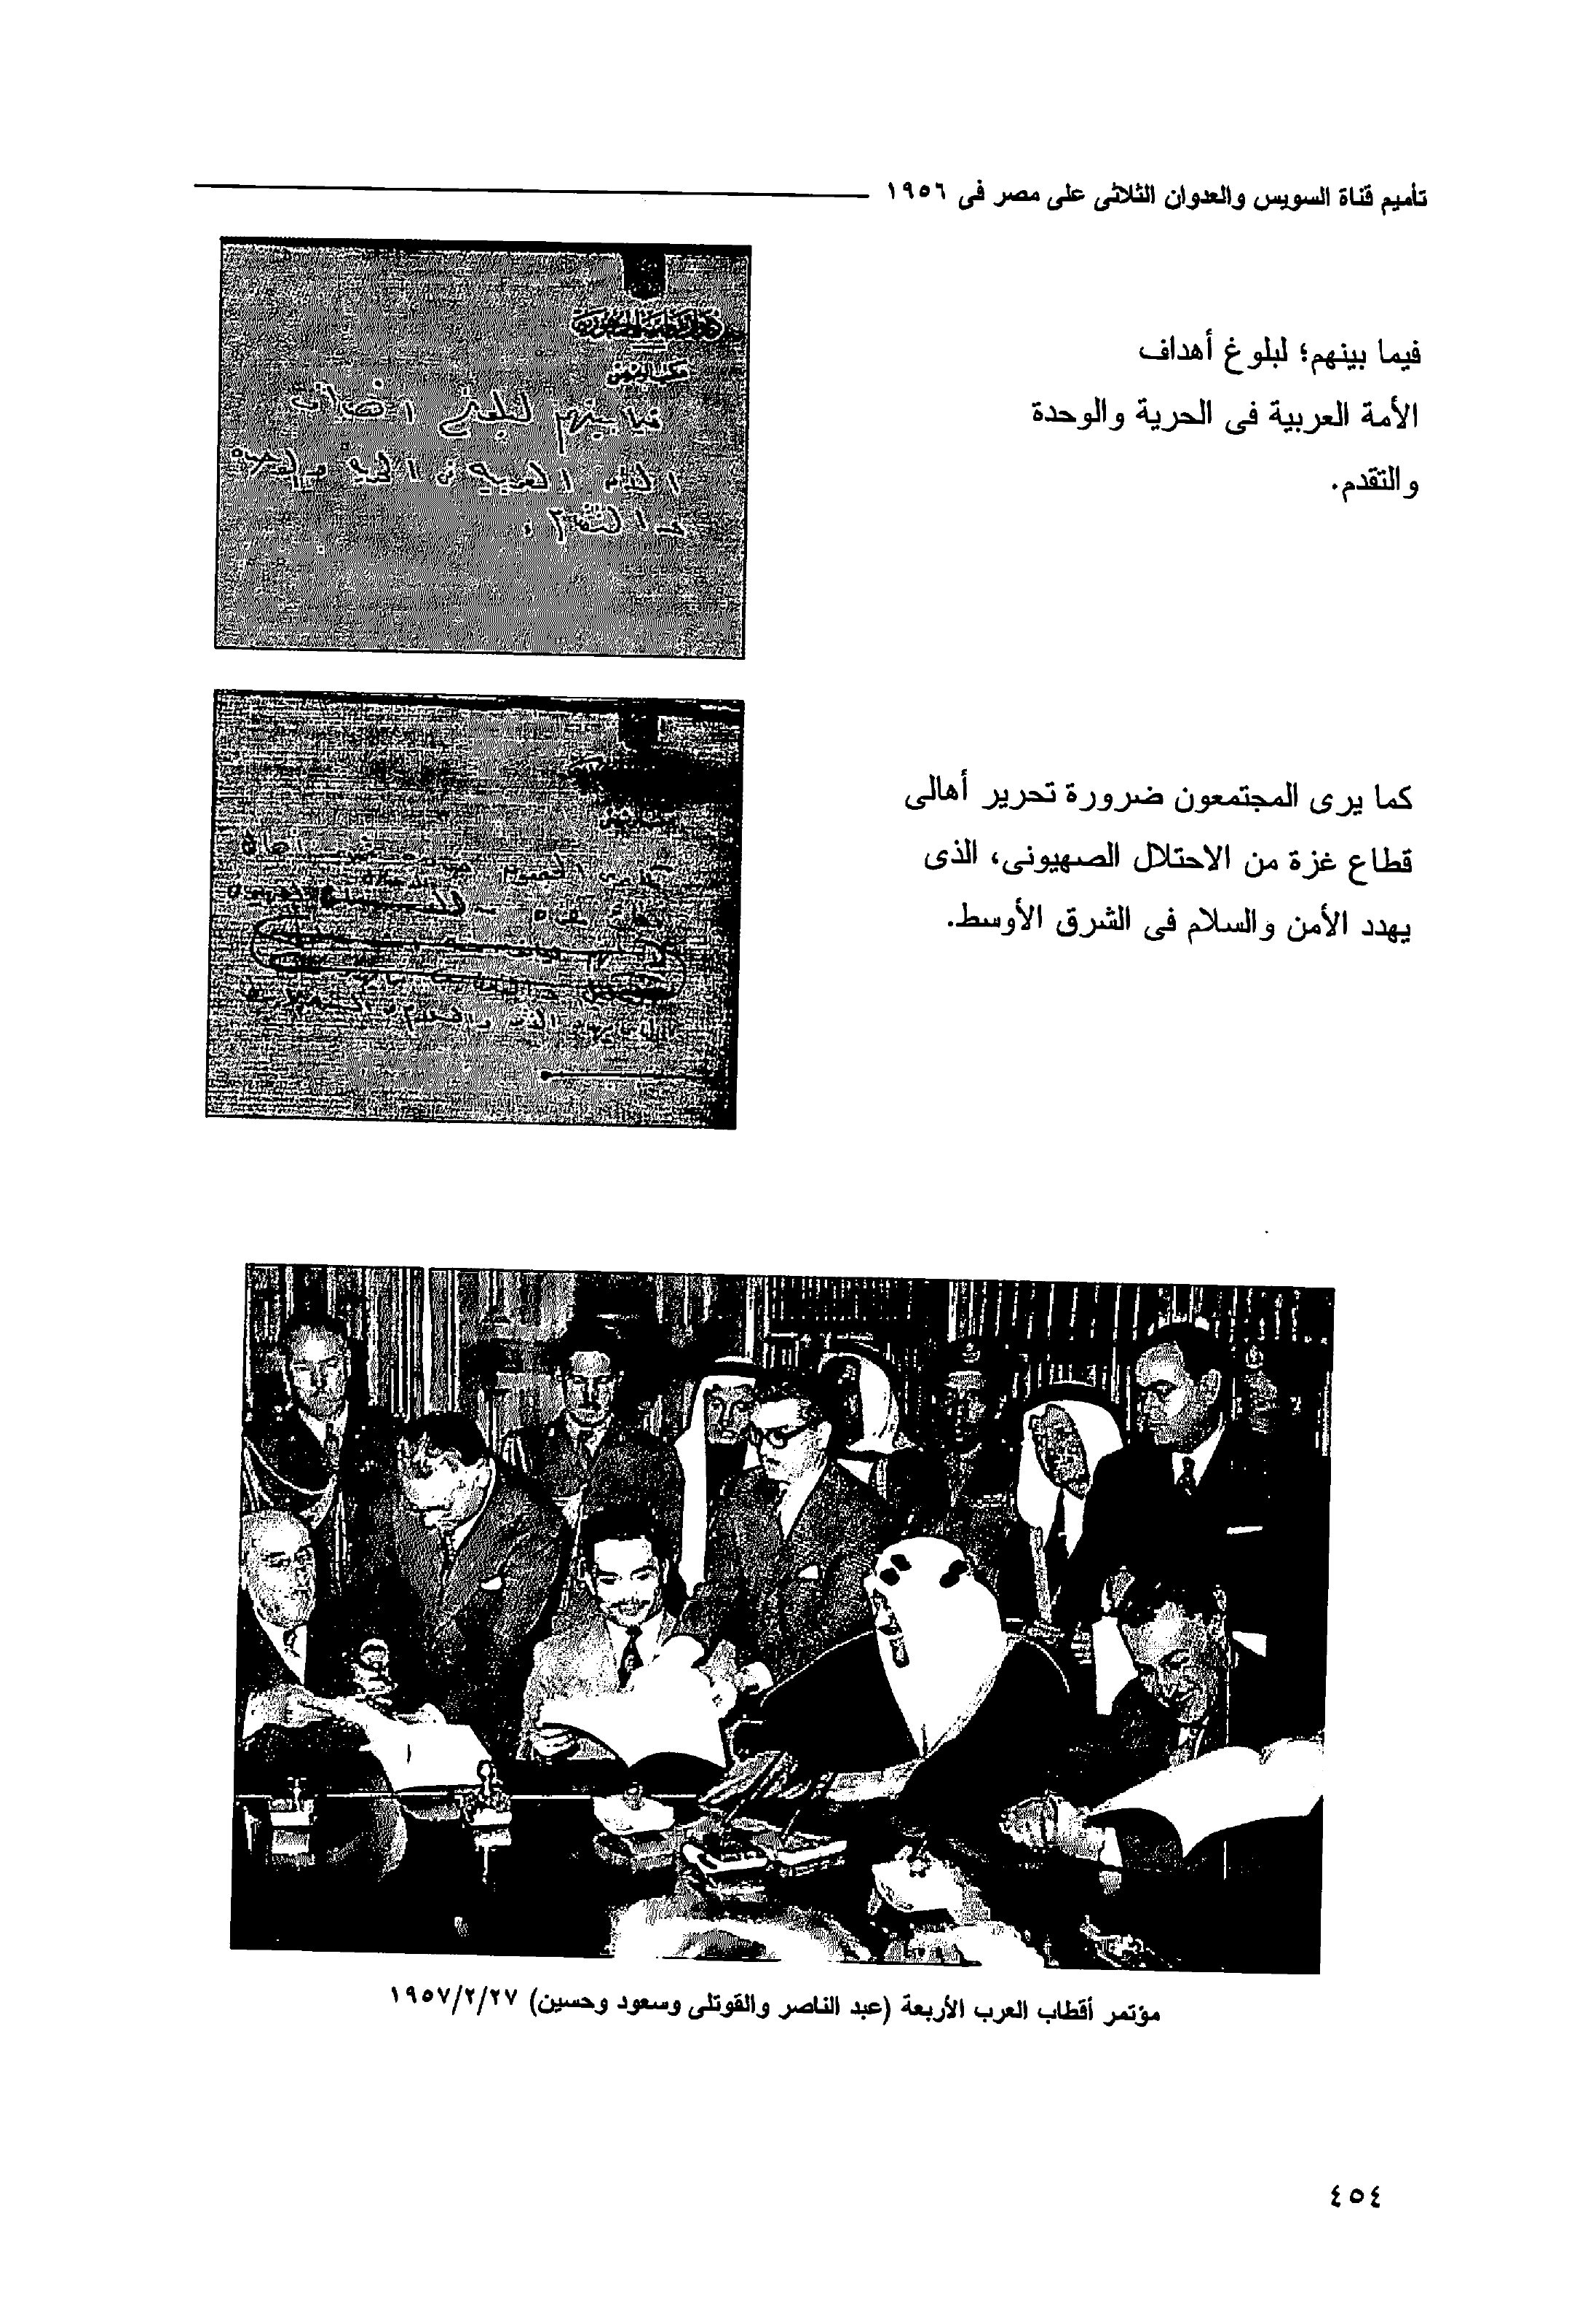 تأميم قناة السويس والعدوان الثلاثى على مصر فى ١٩٥٦
فيما بينهم؛ لبلوغ أهداف
الأمة العربية فى الحرية والوحدة
والتقدم.
فيما بينهم لبلوغ اهداف
الأمة العربية فى الحرية والوحدة
والتقدم .
كما يرى المجتمعون ضرورة تحرير أهالى
قطاع غزة من الاحتلال الصهيونى، الذى
يهدد الأمن والسلام فى الشرق الأوسط.
مؤتمر أقطاب العرب الأربعة (عبد الناصر والقوتلى وسعود وحسين) ١٩٥٧/٢/٢٧
٤٥٤